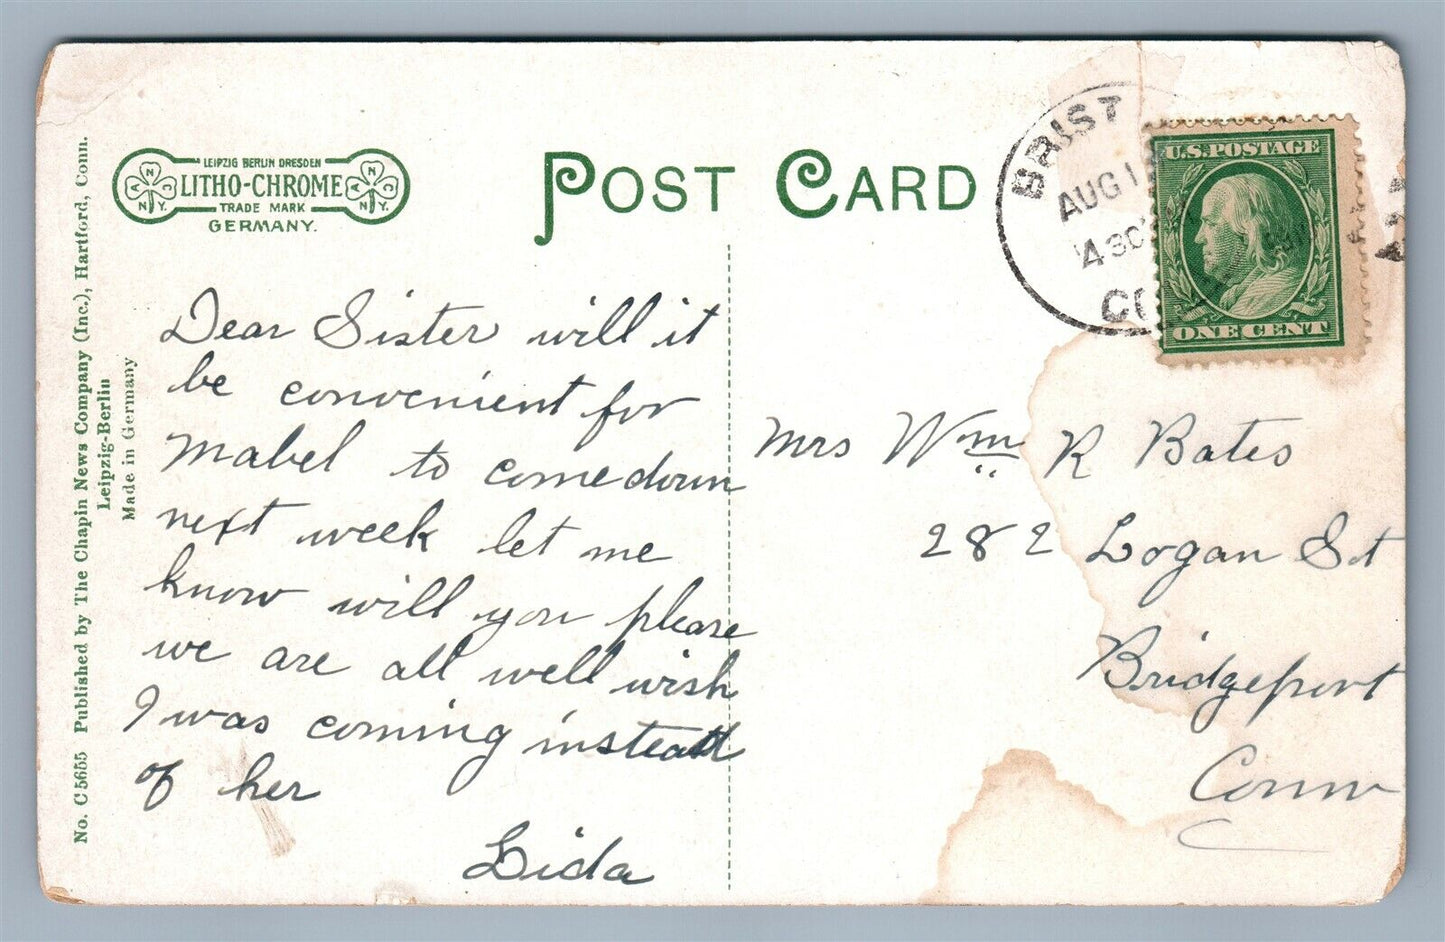 LEIPZIG BERLIN DRESDEN
LITHO-CHROME
TRADE MARK
GERMANY.
A N C
N.Y.
A N C
N.Y.
POST CARD
BRIST
AUG 1
430
CO
U.S. POSTAGE
ONE CENT
No. C 5655 Published by The Chapin News Company (Inc.), Hartford, Conn.
Leipzig-Berlin
Made in Germany
Dear Sister will it
be convenient for
Mabel to come down
next week let me
know will you please
we are all well wish
I was coming instead
of her
Lida
Mrs Wm R Bates
282 Logan St
Bridgeport
Conn